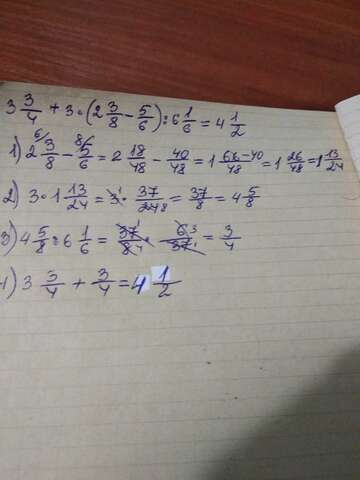 3 3/4 + 3 · (2 3/8 - 5/6) : 6 1/6 = 4 1/2
1) 2 3/8 - 5/6 = 2 18/48 - 40/48 = 1 66-40/48 = 1 26/48 = 1 13/24
2) 3 · 1 13/24 = 3 · 37/24 = 37/8 = 4 5/8
3) 4 5/8 : 6 1/6 = 37/8 · 6/37 = 3/4
4) 3 3/4 + 3/4 = 4 1/2